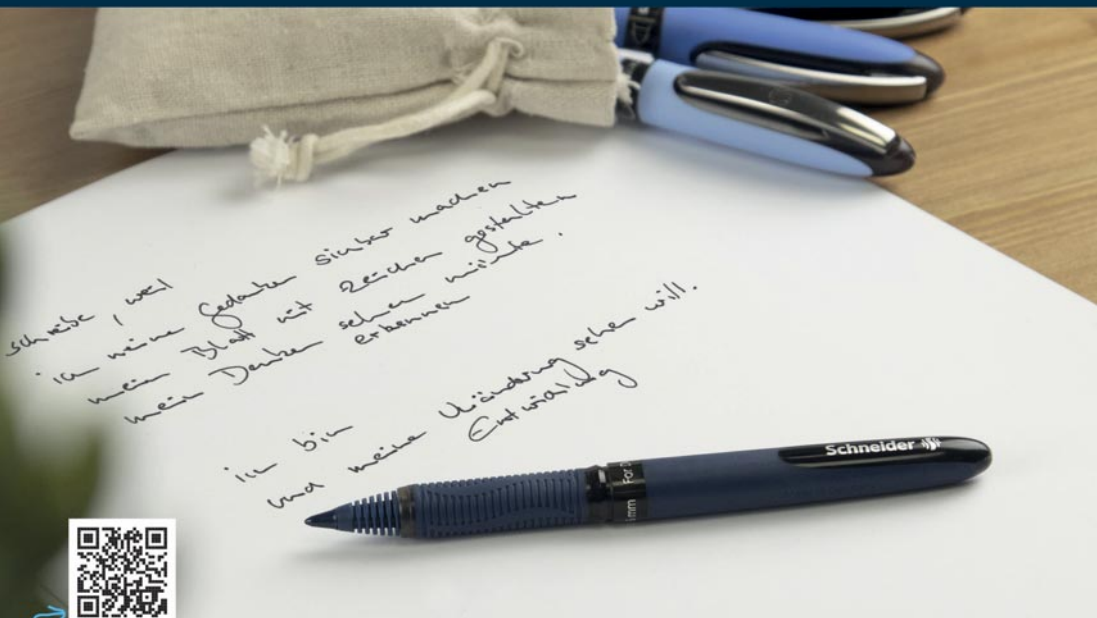 schreibe, weil
ich meine Gedanken sichtbar machen
mein Blatt mit Zeichen gestalten
mein Denken sehen möchte.
erkennen
ich bin
und meine Veränderung sehen will.
Entwicklung
Schneider
mm For D